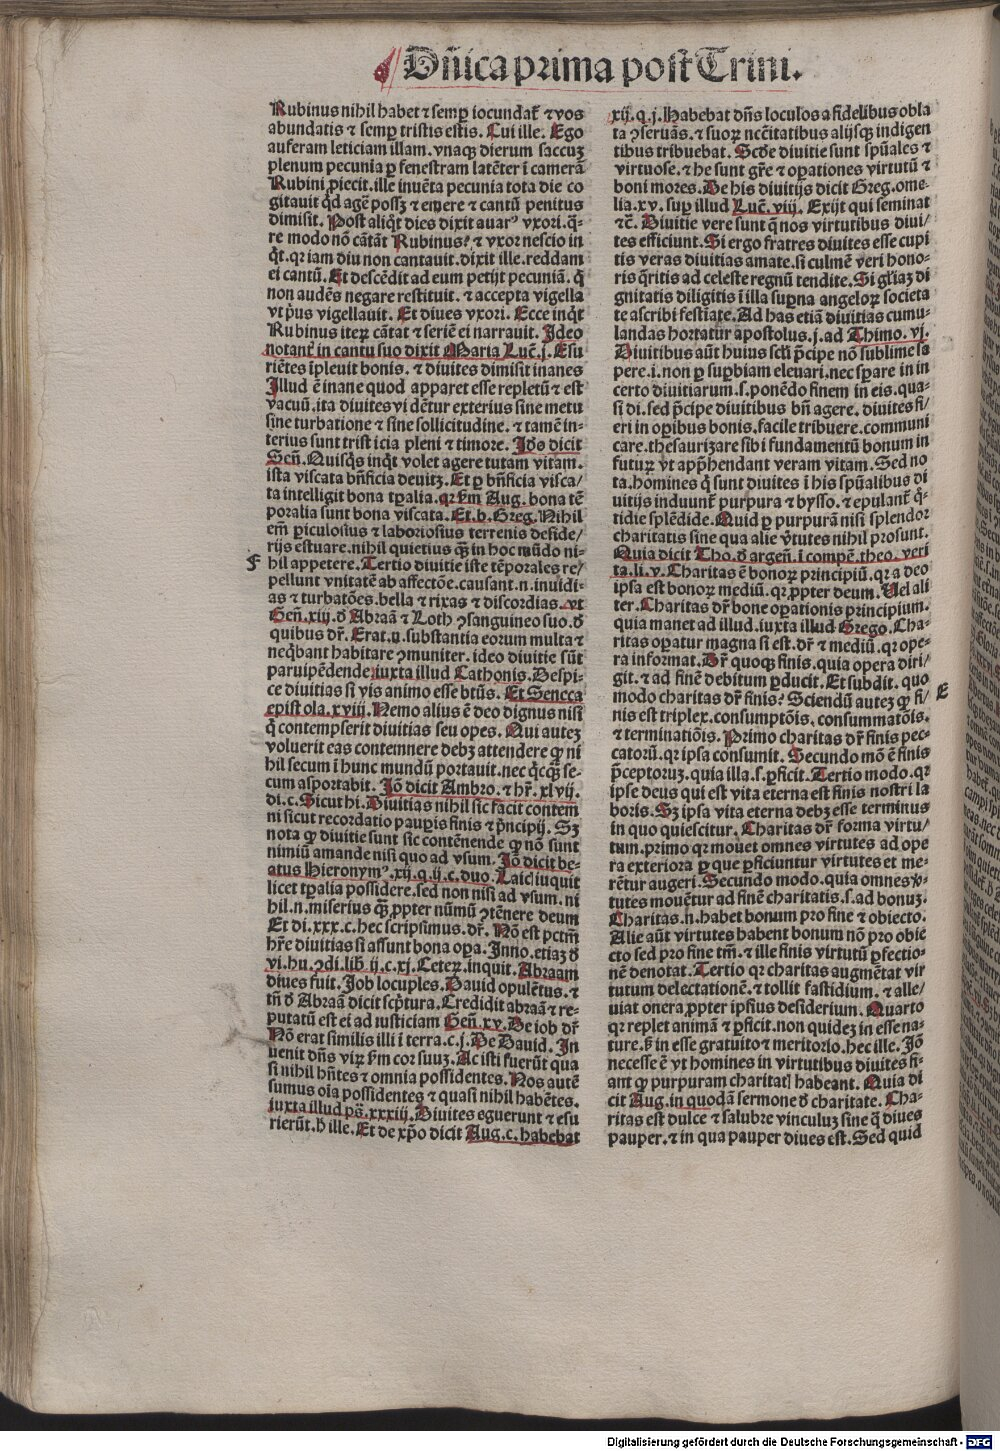 Dñica prima post Trini.
Rubinus nihil habet ⁊ semꝑ iocundat̄ ⁊ vos
abundatis ⁊ semꝑ tristis estis. Cui ille. Ego
auferam leticiam illam. vnaqꝫ dierum saccuꝫ
plenum pecunia ꝑ fenestram latēter ī camerā
Rubini ꝓiecit. ille inuēta pecunia tota die co
gitauit qd̄ agē possꝫ ⁊ emere ⁊ cantū penitus
dimisit. Post aliq̄t dies dixit auarꝰ vxori. q̄-
re modo nō cātāt Rubinus? ⁊ vxor nescio in
q̄t. qr iam diu non cantauit. dixit ille. reddam
ei cantū. Et descēdit ad eum petijt pecuniā. q̄
non audēs negare restituit. ⁊ accepta vigella
vt pͥus vigellauit. Et diues vxori. Ecce inq̄t
Rubinus iteꝝ cātat ⁊ seriē ei narrauit. Ideo
notant̄ in cantu suo dixit Maria Luc̄. j. Esu
riētes īpleuit bonis. ⁊ diuites dimisit inanes
Illud ē inane quod apparet esse repletū ⁊ est
vacuū. ita diuites vidētur exterius sine metu
sine turbatione ⁊ sine sollicitudine. ⁊ tamē in-
terius sunt tristicia pleni ⁊ timore. Iō s dicit
Señ. Quisq̄s inq̄t volet agere tutam vitam.
ista viscata bn̄ficia deuitꝫ. Et ꝑ bn̄ficia visca/
ta intelligit bona tꝑalia. qr ẜm Aug. bona tē
poralia sunt bona viscata. Et. b. Greg. Nihil
em̄ ꝑiculosius ⁊ laboriosius terrenis deside/
rijs estuare. nihil quietius qꝫ̄ in hoc mūdo ni-
F
hil appetere. Tertio diuitie iste tēporales re/
pellunt vnitatē ab affectōe. causant. n. inuidi-
as ⁊ turbatōes. bella ⁊ rixas ⁊ discordias. vt
Geñ. xiij. ð Abraā ⁊ Loth ↄsanguineo suo. ð
quibus dr̄. Erat. u. substantia eorum multa ⁊
neq̄bant habitare ↄmuniter. ideo diuitie sūt
paruipēdende iuxta illud Cathonis. Despi-
ce diuitias si vis animo esse btūs. Et Seneca
epistola. xviij. Nemo alius ē deo dignus nisi
q̄ contempserit diuitias seu opes. Qui auteꝫ
voluerit eas contemnere debꝫ attendere ꝙ ni
hil secum ī hunc mundū portauit. nec q̄cqꝫ se-
cum asportabit. Iō dicit Ambro. ⁊ hr̄. xlvij.
di. c. Sicut hi. Diuitias nihil sic facit contem
ni sicut recordatio pauꝑis finis ⁊ pͥncipij. Sꝫ
nota ꝙ diuitie sunt sic contēnende ꝙ nō sunt
nimiū amande nisi quo ad vsum. Iō dicit be-
atus Hieronymꝰ. xij. q. ij. c. duo. Laici iuquit
licet tꝑalia possidere. sed non nisi ad vsum. ni
hil. n. miserius qꝫ̄ ꝓpter nūmū ↄtēnere deum
Et di. xxx. c. hec scripsimus. dr̄. Nō est pctm̄
hr̄e diuitias si assunt bona oꝑa. Inno. etiaꝫ ð
vi. hu. ↄdi. lib̄. ij. c. xj. Ceteꝝ. inquit. Abraam
diues fuit. Job locuples. Dauid opulētus. ⁊
tn̄ ð Abraā dicit scͥptura. Credidit abraā ⁊ re-
putatū est ei ad iusticiam Geñ. xv. De iob dr̄
Nō erat similis illi ī terra. c. j. De Dauid. In
uenit dn̄s viꝝ ẜm cor suuꝫ. Ac isti fuerūt qua
si nihil hn̄tes ⁊ omnia possidentes. Nos autē
sumus oīa possidentes ⁊ quasi nihil habētes.
iuxta illud ps̄. xxxiij. Diuites eguerunt ⁊ esu
rierūt. h̄ ille. Et de xp̄o dicit Aug. c. habebat
xij. q. j. Habebat dn̄s loculos a fidelibus obla
ta ↄseruās. ⁊ suoꝝ nc̄citatibus alijsqꝫ indigen
tibus tribuebat. Scd̄e diuitie sunt spūales ⁊
virtuose. ⁊ he sunt gr̄e ⁊ oꝑationes virtutū ⁊
boni mores. De his diuitijs dicit Greg. ome-
lia. xv. suꝑ illud Luc̄. viij. Exijt qui seminat
⁊c̄. Diuitie vere sunt q̄ nos virtutibus diui/
tes efficiunt. Si ergo fratres diuites esse cupi
tis veras diuitias amate. si culmē veri hono-
ris q̄ritis ad celeste regnū tendite. Si gl̄iaꝫ di
gnitatis diligitis ī illa suꝑna angeloꝝ societa
te ascribi festīate. Ad has etiā diuitias cumu-
landas hortatur apostolus. j. ad Thimo. vj.
Diuitibus aūt huius scl̄i p̄cipe nō sublime sa
pere. i. non ꝑ suꝑbiam eleuari. nec sꝑare in in
certo diuitiarum. s. ponēdo finem in eis. qua-
si di. sed p̄cipe diuitibus bn̄ agere. diuites fi/
eri in oꝑibus bonis. facile tribuere. communi
care. thesaurizare sibi fundamentū bonum in
futuꝝ vt app̄hendant veram vitam. Sed no
ta. homines q̄ sunt diuites ī his spūalibus di
uitijs induunt̄ purpura ⁊ bysso. ⁊ epulant̄ q̄-
tidie splēdide. Quid ꝑ purpurā nisi splendor
charitatis sine qua alie v̄tutes nihil prosunt.
Quia dicit Tho. ð argeñ. ī compē. theo. veri
ta. li. v. Charitas ē bonoꝝ principiū. qr a deo
ipsa est bonoꝝ mediū. qr ꝓpter deum. Uel ali
ter. Charitas dr̄ bone oꝑationis principium.
quia manet ad illud. iuxta illud Grego. Cha-
ritas oꝑatur magna si est. dr̄ ⁊ mediū. qr ope-
ra informat. Dr̄ quoqꝫ finis. quia opera diri/
git. ⁊ ad finē debitum ꝑducit. Et subdit. quo
E
modo charitas dr̄ finis? Sciendū auteꝫ ꝙ fi/
nis est triplex. consumptōis. consummatōis.
⁊ terminatiōis. Primo charitas dr̄ finis pec-
catorū. qr ipsa consumit. Secundo mō ē finis
p̄ceptoruꝫ. quia illa. s. ꝑficit. Tertio modo. qr
ipse deus qui est vita eterna est finis nostri la
boris. Sꝫ ipsa vita eterna debꝫ esse terminus
in quo quiescitur. Charitas dr̄ forma virtu/
tum. primo qr mouet omnes virtutes ad ope
ra exteriora ꝑ que ꝑficiuntur virtutes et me-
rētur augeri. Secundo modo. quia omnes v̄-
tutes mouētur ad finē charitatis. s. ad bonuꝫ.
Charitas. n. habet bonum pro fine ⁊ obiecto.
Alie aūt virtutes habent bonum nō pro obie
cto sed pro fine tm̄. ⁊ ille finis virtutū ꝑfectio-
nē denotat. Tertio qr charitas augmētat vir
tutum delectationē. ⁊ tollit fastidium. ⁊ alle/
uiat onera ꝓpter ipsius desiderium. Quarto
qr replet animā ⁊ ꝑficit. non quideꝫ in esse na-
ture. ẜ in esse gratuito ⁊ meritorio. hec ille. Iō
necesse ē vt homines in virtutibus diuites fi-
ant ꝙ purpuram charitatꝭ habeant. Quia di
cit Aug. in quodā sermone ð charitate. Cha-
ritas est dulce ⁊ salubre vinculuꝫ sine q̄ diues
pauper. ⁊ in qua pauper diues est. Sed quid
Digitalisierung gefördert durch die Deutsche Forschungsgemeinschaft - DFG